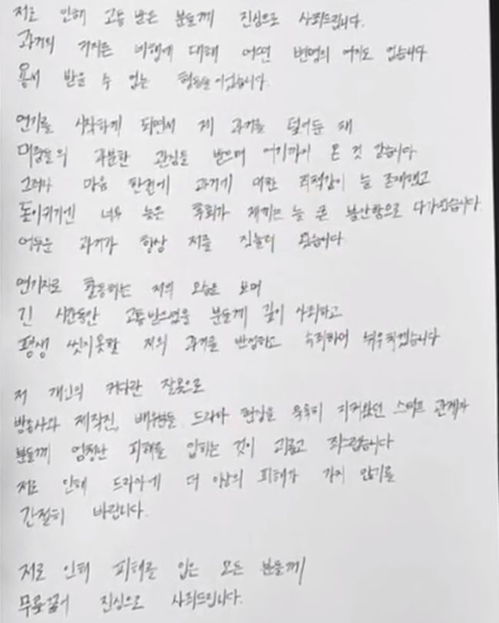 저로 인해 고통 받은 분들께 진심으로 사죄드립니다.
과거에 저지른 비행에 대해 어떤 변명의 여지도 없습니다
용서 받을 수 없는 행동들이었습니다.
연기를 시작하게 되면서 제 과거를 덮어둔 채
대중들의 과분한 관심을 받으며 여기까지 온 것 같습니다.
그러나 마음 한켠에 과거에 대한 죄책감이 늘 존재했고
돌이키기엔 너무 늦은 후회가 저에게는 늘 큰 불안함으로 다가왔습니다.
어두운 과거가 항상 저를 짓눌러 왔습니다
연기자로 활동하는 저의 모습을 보며
긴 시간동안 고통받으셨을 분들께 깊이 사죄하고
평생 씻지못할 저의 과거를 반성하고 속죄하며 뉘우치겠습니다
저 개인의 커다란 잘못으로
방송사와 제작진, 배우분들 드라마 현장을 묵묵히 지켜왔던 스태프 관계자
분들께 엄청난 피해를 입히는 것이 괴롭고 죄스럽습니다
저로 인해 드라마에 더 이상의 피해가 가지 않기를
간절히 바랍니다.
저로 인해 피해를 입은 모든 분들께
무릎꿇어 진심으로 사죄드립니다.